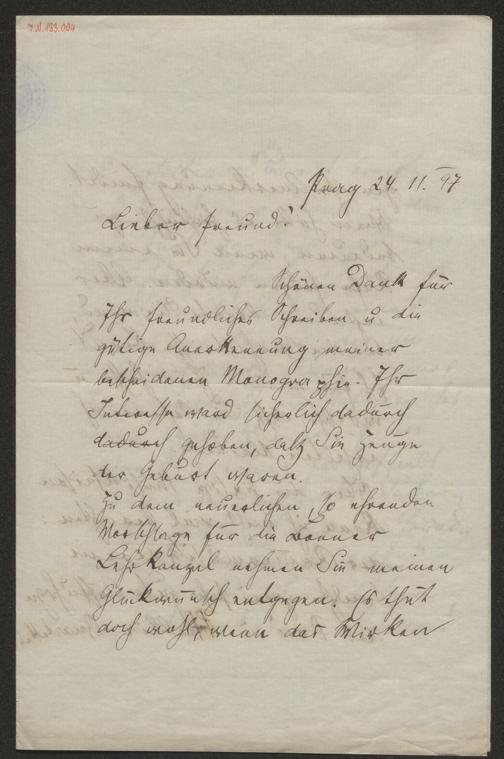 J.N. 133.004
Prag 24. 11. 97
Lieber Freund!
Schönen Dank für
Ihr freundliches Schreiben u die
gütige Anerkennung meiner
bescheidenen Monographie. Ihr
Interesse ward sicherlich dadurch
dadurch gehoben, daß Sie Zeuge
der Geburt waren.
Zu dem neuerlichen, so ehrenden
Vorschlage für die Wiener
Lehrkanzel nehmen Sie meinen
Glückwunsch entgegen. Es thut
doch wohl, wenn das Wirken